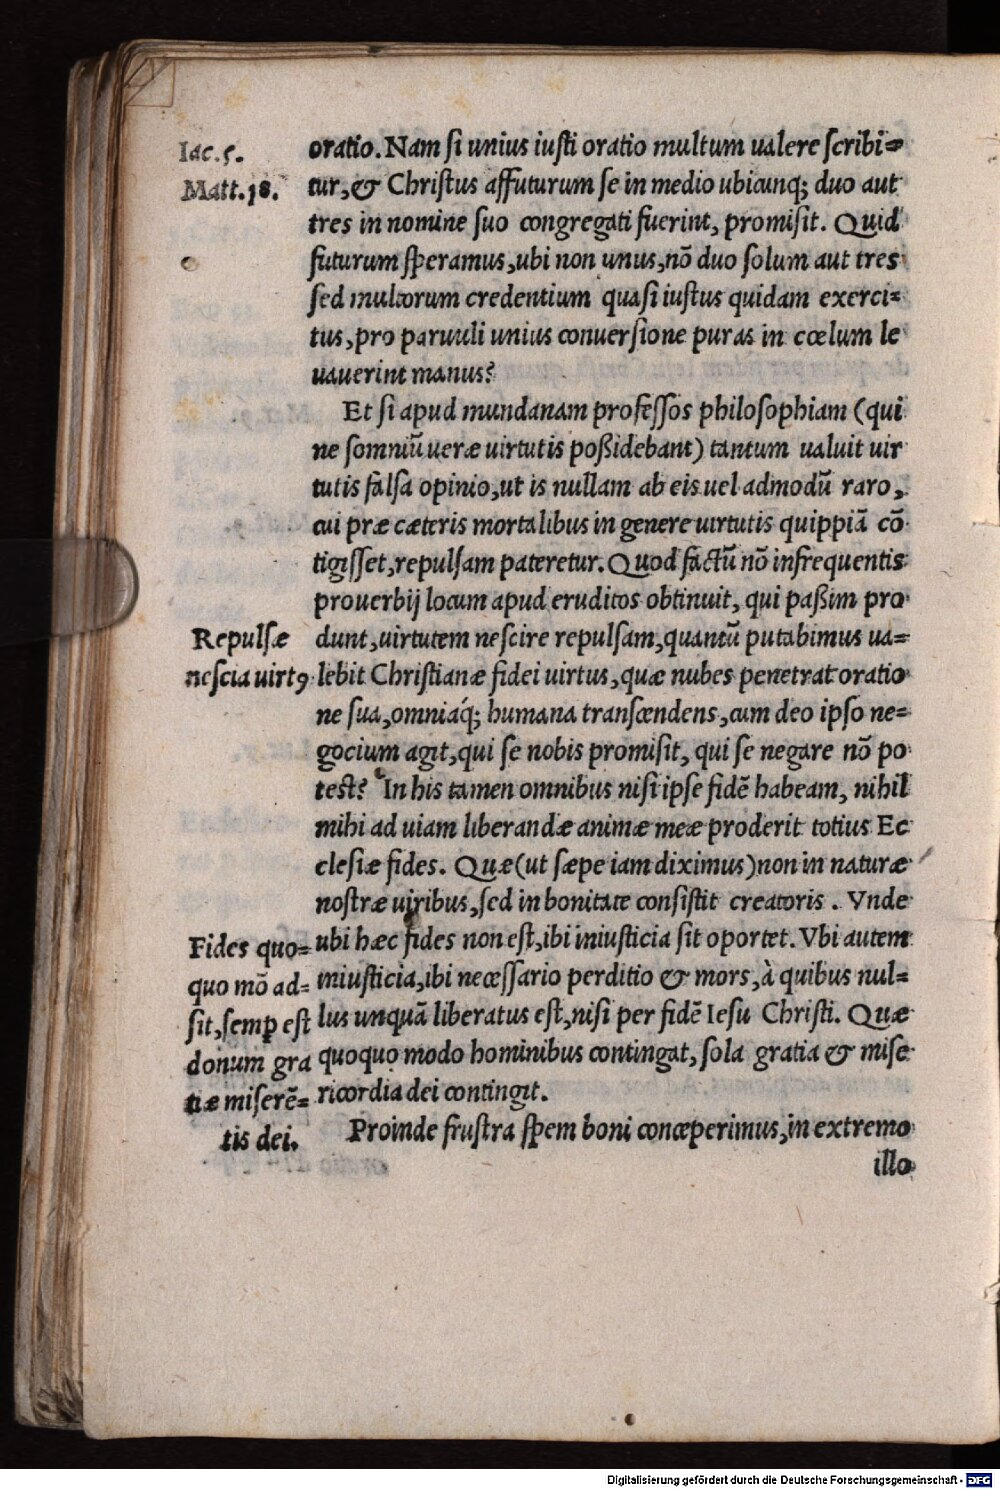 Iac. 5.
Matt. 18.
oratio. Nam si unius iusti oratio multum ualere scribi=
tur, & Christus affuturum se in medio ubicunq; duo aut
tres in nomine suo congregati fuerint, promisit. Quid
futurum speramus, ubi non unus, nõ duo solum aut tres
sed multorum credentium quasi iustus quidam exerci=
tus, pro paruuli unius conuersione puras in cœlum le
uauerint manus?
Et si apud mundanam professos philosophiam (qui
ne somniũ ueræ uirtutis poßidebant) tantum ualuit uir
tutis falsa opinio, ut is nullam ab eis uel admodũ raro,
cui præ cæteris mortalibus in genere uirtutis quippiã cõ
tigisset, repulsam pateretur. Quod factũ nõ infrequentis
prouerbij locum apud eruditos obtinuit, qui paßim pro
Repulsæ
nescia uirtꝰ
dunt, uirtutem nescire repulsam, quantũ putabimus ua=
lebit Christianæ fidei uirtus, quæ nubes penetrat oratio
ne sua, omniaq́; humana transcendens, cum deo ipso ne=
gocium agit, qui se nobis promisit, qui se negare nõ po
test? In his tamen omnibus nisi ipse fidẽ habeam, nihil
mihi ad uiam liberandæ animæ meæ proderit totius Ec
clesiæ fides. Quæ (ut sæpe iam diximus) non in naturæ
nostræ uiribus, sed in bonitate consistit creatoris. Vnde
ubi hæc fides non est, ibi iniusticia sit oportet. Vbi autem
iniusticia, ibi necessario perditio & mors, à quibus nul=
lus unquã liberatus est, nisi per fidẽ Iesu Christi. Quæ
quoquo modo hominibus contingat, sola gratia & mise
ricordia dei contingit.
Fides quo=
quo mõ ad=
sit, semꝑ est
donum gra
tiæ miserẽ=
tis dei.
Proinde frustra spem boni conceperimus, in extremo
illo
Digitalisierung gefördert durch die Deutsche Forschungsgemeinschaft - DFG